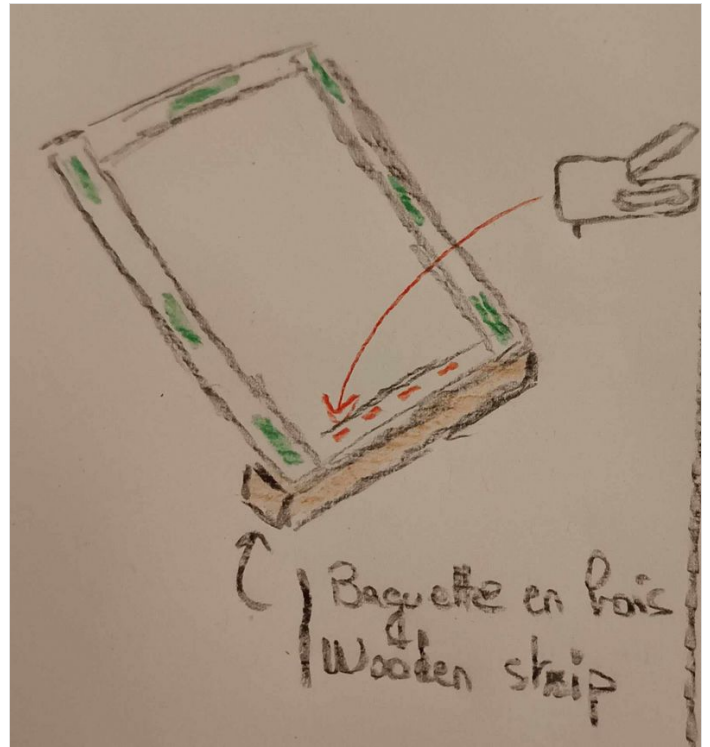 Baguette en bois
Wooden strip